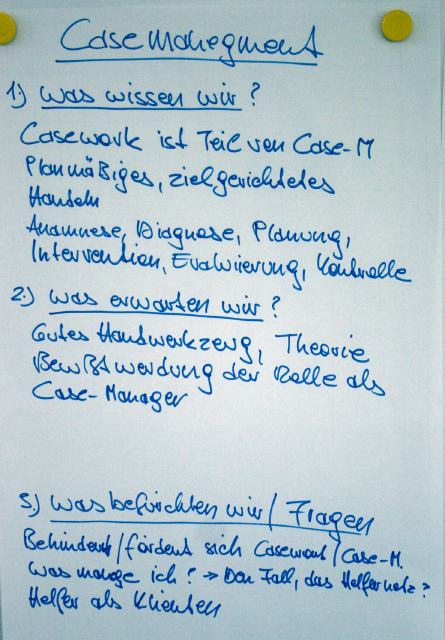 Casemanegment
1.) Was wissen wir?
Casework ist Teil von Case-M
Planmäßiges, zielgerichtetes
Handeln
Anamnese, Diagnose, Planung,
Intervention, Evaluierung, Kontrolle
2.) Was erwarten wir?
Gutes Handwerkzeug, Theorie
Bewßtwerdung der Rolle als
Case-Manager
3.) Was befürchten wir / Fragen
Behindert/fördert sich Casework/Case-M.
Was manage ich? → Den Fall, das Helfernetz?
Helfer als Klienten